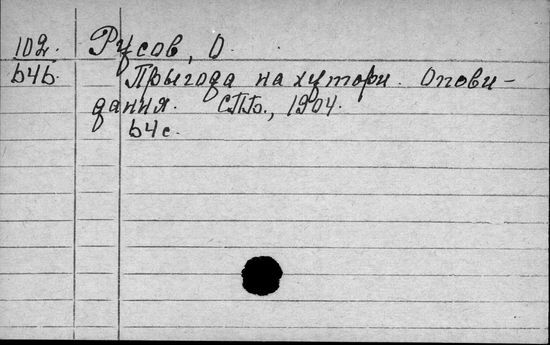 102. Русов, О.
646. Прыгода на хутори. Опови-
дання. СПБ., 1904.
64 с.